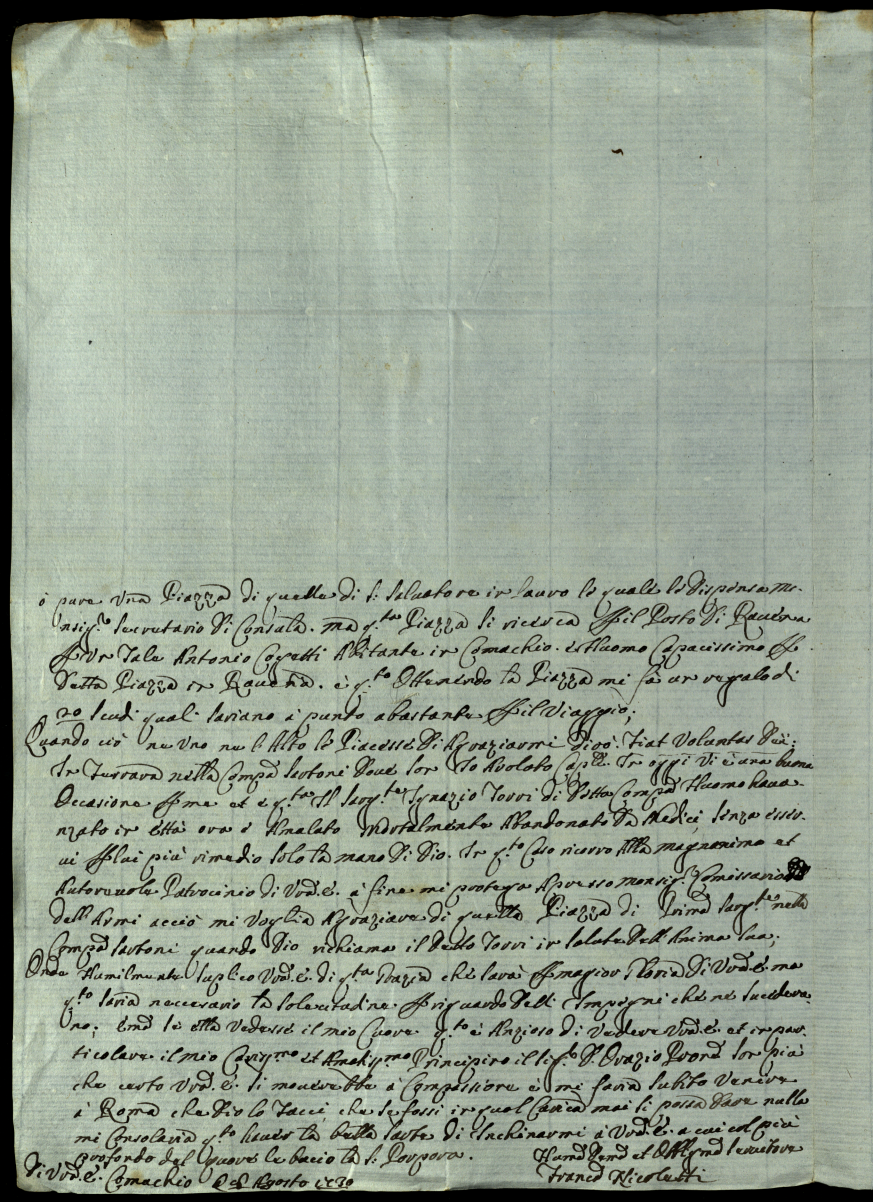 ò pure Vna Piazza di quelle di S: Salvatore in Lauro le quale le dispensa Mo-
nsig.re Secretario di Consulta. ma q.ta Piazza si ricerca il Posto di Ravena
Vn Tale Antonio Abitante in Comachio. è Huomo Capacissimo
detta Piazza in Ravena. e q.to Ottenendo la Piazza mi fà un regalo di
20 Scudi quali sariano à punto abastante il Viaggio;
Quando ciò ne Vno ne l'Alto le Piacesse di Agraziarmi dirò. Fiat Voluntas Dei;
In Ferrara nella Comp.a Sartoni doue son Io Arolato Cap.le. In oggi vi è una buona
Occasione me et è q.ta Il Sarg.te Ignazio Torri di detta Comp.a Huomo haua-
nzato in ettà ora è Amalato Mortalmente Abandonato da Medici, senza esser-
ui lui più rimedio solo la mano di Dio. In q.to Caso ricorro Alla magnanimo et
Autoreuole Patrocinio di Vrã.E. à fine mi protega Apresso monsig.r Comissario
dell'Armi acciò mi Voglia Agraziare di quella Piazza di Primo Sarg.te nella
Comp.a Sartoni quando Dio richiama il detto Torri in Salute dell'Anima Sua;
Onde Humilmente Suplico Vrã.E. di q.ta Grazia che sarà magior Gloria di Vrã.E. ma
q.to saria necessario la solecitudine riguardo delli Impegni che ne succedera-
no; se ella Vedesse il mio Cuore q.to è Anzioso di Vedere Vrã.E. et in par-
ticolare il mio Cariss.mo et Amatiss.mo Principino il Sig.r D. Orazio son più
che certo Vrã.E. si mouerebbe à Compassione è mi faria subito Venire
à Roma che Dio lo Facci, che se fossi in qual Carica mai si possa dare nulla
mi Consolaria q.to hauer la bella sorte di Inchinarmi à Vrã.E. a cui col più
profondo del quore le bacio la S. Porpora.
Di Vrã.E. Comachio Agosto
Hum.o Deu.o et Obblig.mo Seruitore
Franc.o Nicoletti